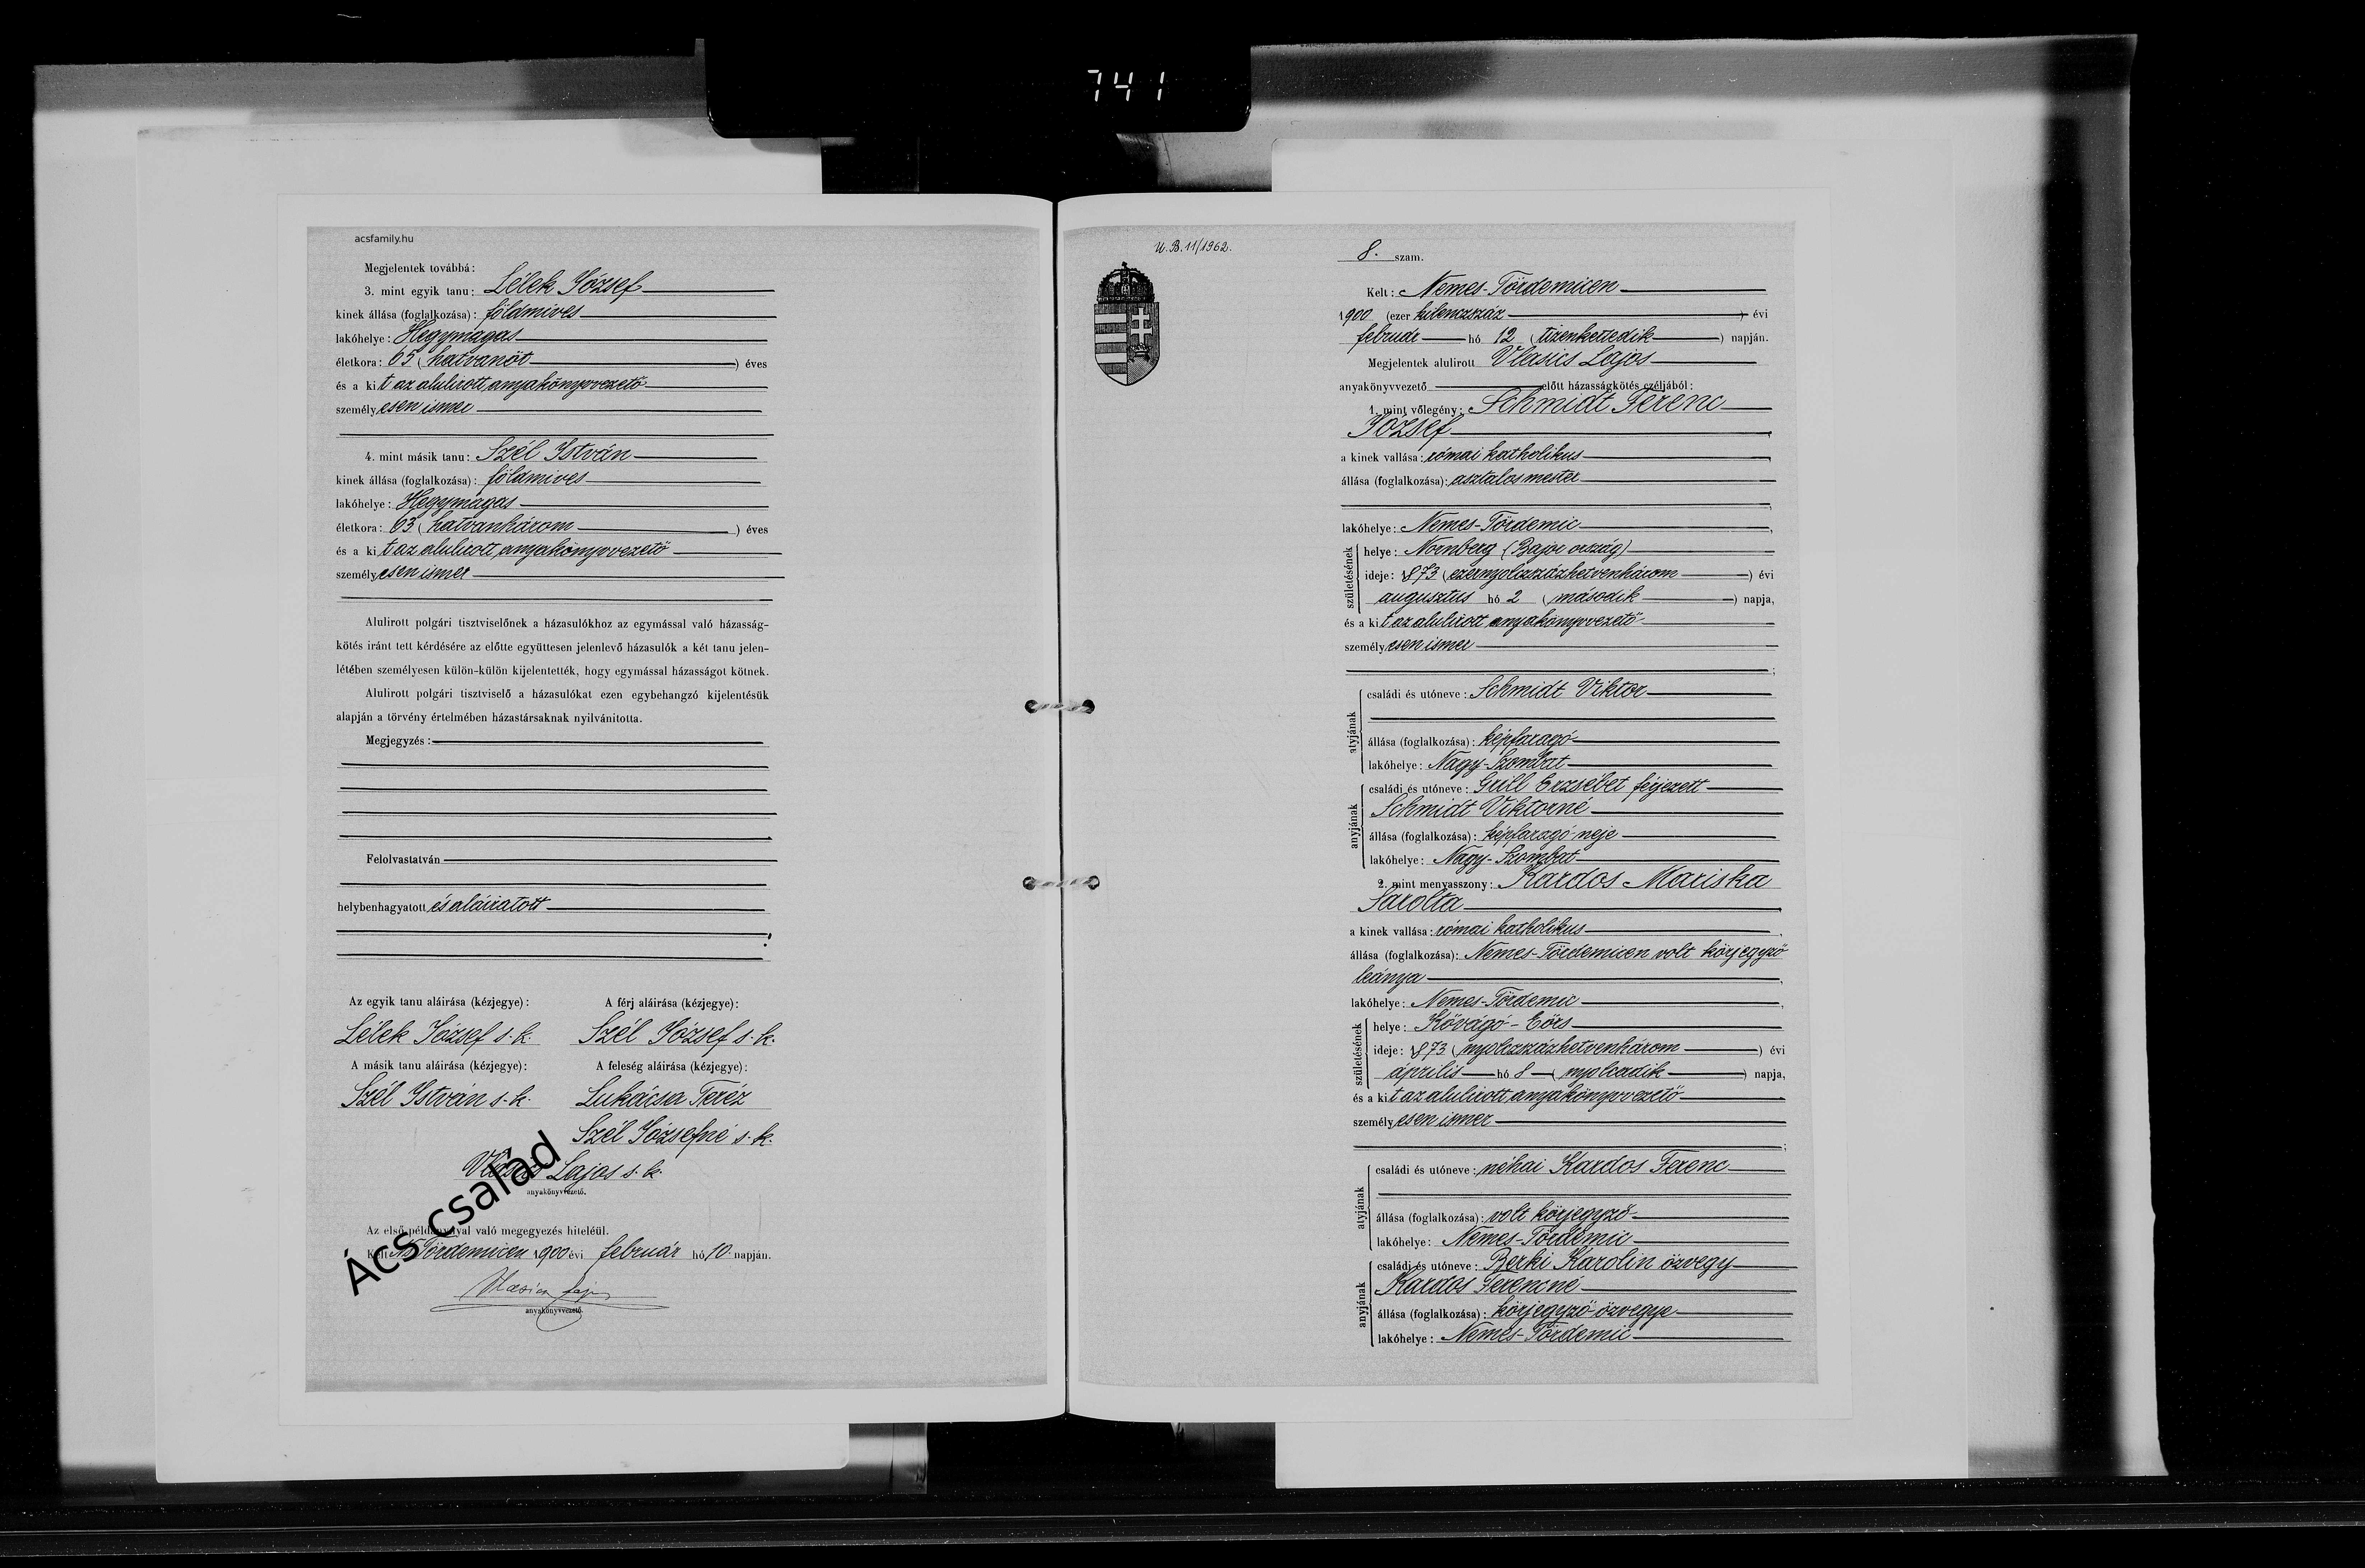 741
acsfamily.hu
Megjelentek továbbá:
3. mint egyik tanu: Lélek József
kinek állása (foglalkozása): földmives
lakóhelye: Hegymagas
életkora: 65 (hatvanöt) éves
és a kit az alulirott anyakönyvvezető
személyesen ismer
4. mint másik tanu: Szél István
kinek állása (foglalkozása): földmives
lakóhelye: Hegymagas
életkora: 63 (hatvanhárom) éves
és a kit az alulirott anyakönyvvezető
személyesen ismer
Alulirott polgári tisztviselőnek a házasulókhoz az egymással való házasság-
kötés iránt tett kérdésére az előtte együttesen jelenlevő házasulók a két tanu jelen-
létében személyesen külön-külön kijelentették, hogy egymással házasságot kötnek.
Alulirott polgári tisztviselő a házasulókat ezen egybehangzó kijelentésük
alapján a törvény értelmében házastársaknak nyilvánitotta.
Megjegyzés:
Felolvastatván
helybenhagyatott és aláiratott
Az egyik tanu aláirása (kézjegye): A férj aláirása (kézjegye):
Lélek József s. k. Szél József s. k.
A másik tanu aláirása (kézjegye): A feleség aláirása (kézjegye):
Szél István s. k. Lukácsa Teréz
Szél Józsefné s. k.
Vlasics Lajos s. k.
anyakönyvvezető.
Ács család
Az első példánnyal való megegyezés hiteléül.
Kelt N. Tördemicen 1900 évi február hó 10. napján.
Vlasics Lajos
anyakönyvvezető.
U. B. 11/1962.
8. szam.
Kelt: Nemes-Tördemicen
1900 (ezer kilenczszáz) évi
február hó 12 (tizenkettedik) napján.
Megjelentek alulirott Vlasics Lajos
anyakönyvvezető előtt házasságkötés czéljából:
1. mint vőlegény: Schmidt Ferenc
József
a kinek vallása: római katholikus
állása (foglalkozása): asztalos mester
lakóhelye: Nemes-Tördemic
születésének
helye: Nornberg (Bajor ország)
ideje: 1873 (ezernyolczszázhetvenhárom) évi
augusztus hó 2 (második) napja,
és a kit az alulirott anyakönyvvezető
személyesen ismer
atyjának
családi és utóneve: Schmidt Viktor
állása (foglalkozása): képfaragó
lakóhelye: Nagy-Szombat
anyjának
családi és utóneve: Grill Erzsébet férjezett
Schmidt Viktorné
állása (foglalkozása): képfaragó neje
lakóhelye: Nagy-Szombat
2. mint menyasszony: Kardos Mariska
Sarolta
a kinek vallása: római katholikus
állása (foglalkozása): Nemes-Tördemicen volt körjegyző
leánya
lakóhelye: Nemes-Tördemic
születésének
helye: Kővágó-Eörs
ideje: 1873 (nyolczszázhetvenhárom) évi
április hó 8 (nyolczadik) napja,
és a kit az alulirott anyakönyvvezető
személyesen ismer
atyjának
családi és utóneve: néhai Kardos Ferenc
állása (foglalkozása): volt körjegyző
lakóhelye: Nemes-Tördemic
anyjának
családi és utóneve: Berki Karolin özvegy
Kardos Ferencné
állása (foglalkozása): körjegyző özvegye
lakóhelye: Nemes-Tördemic